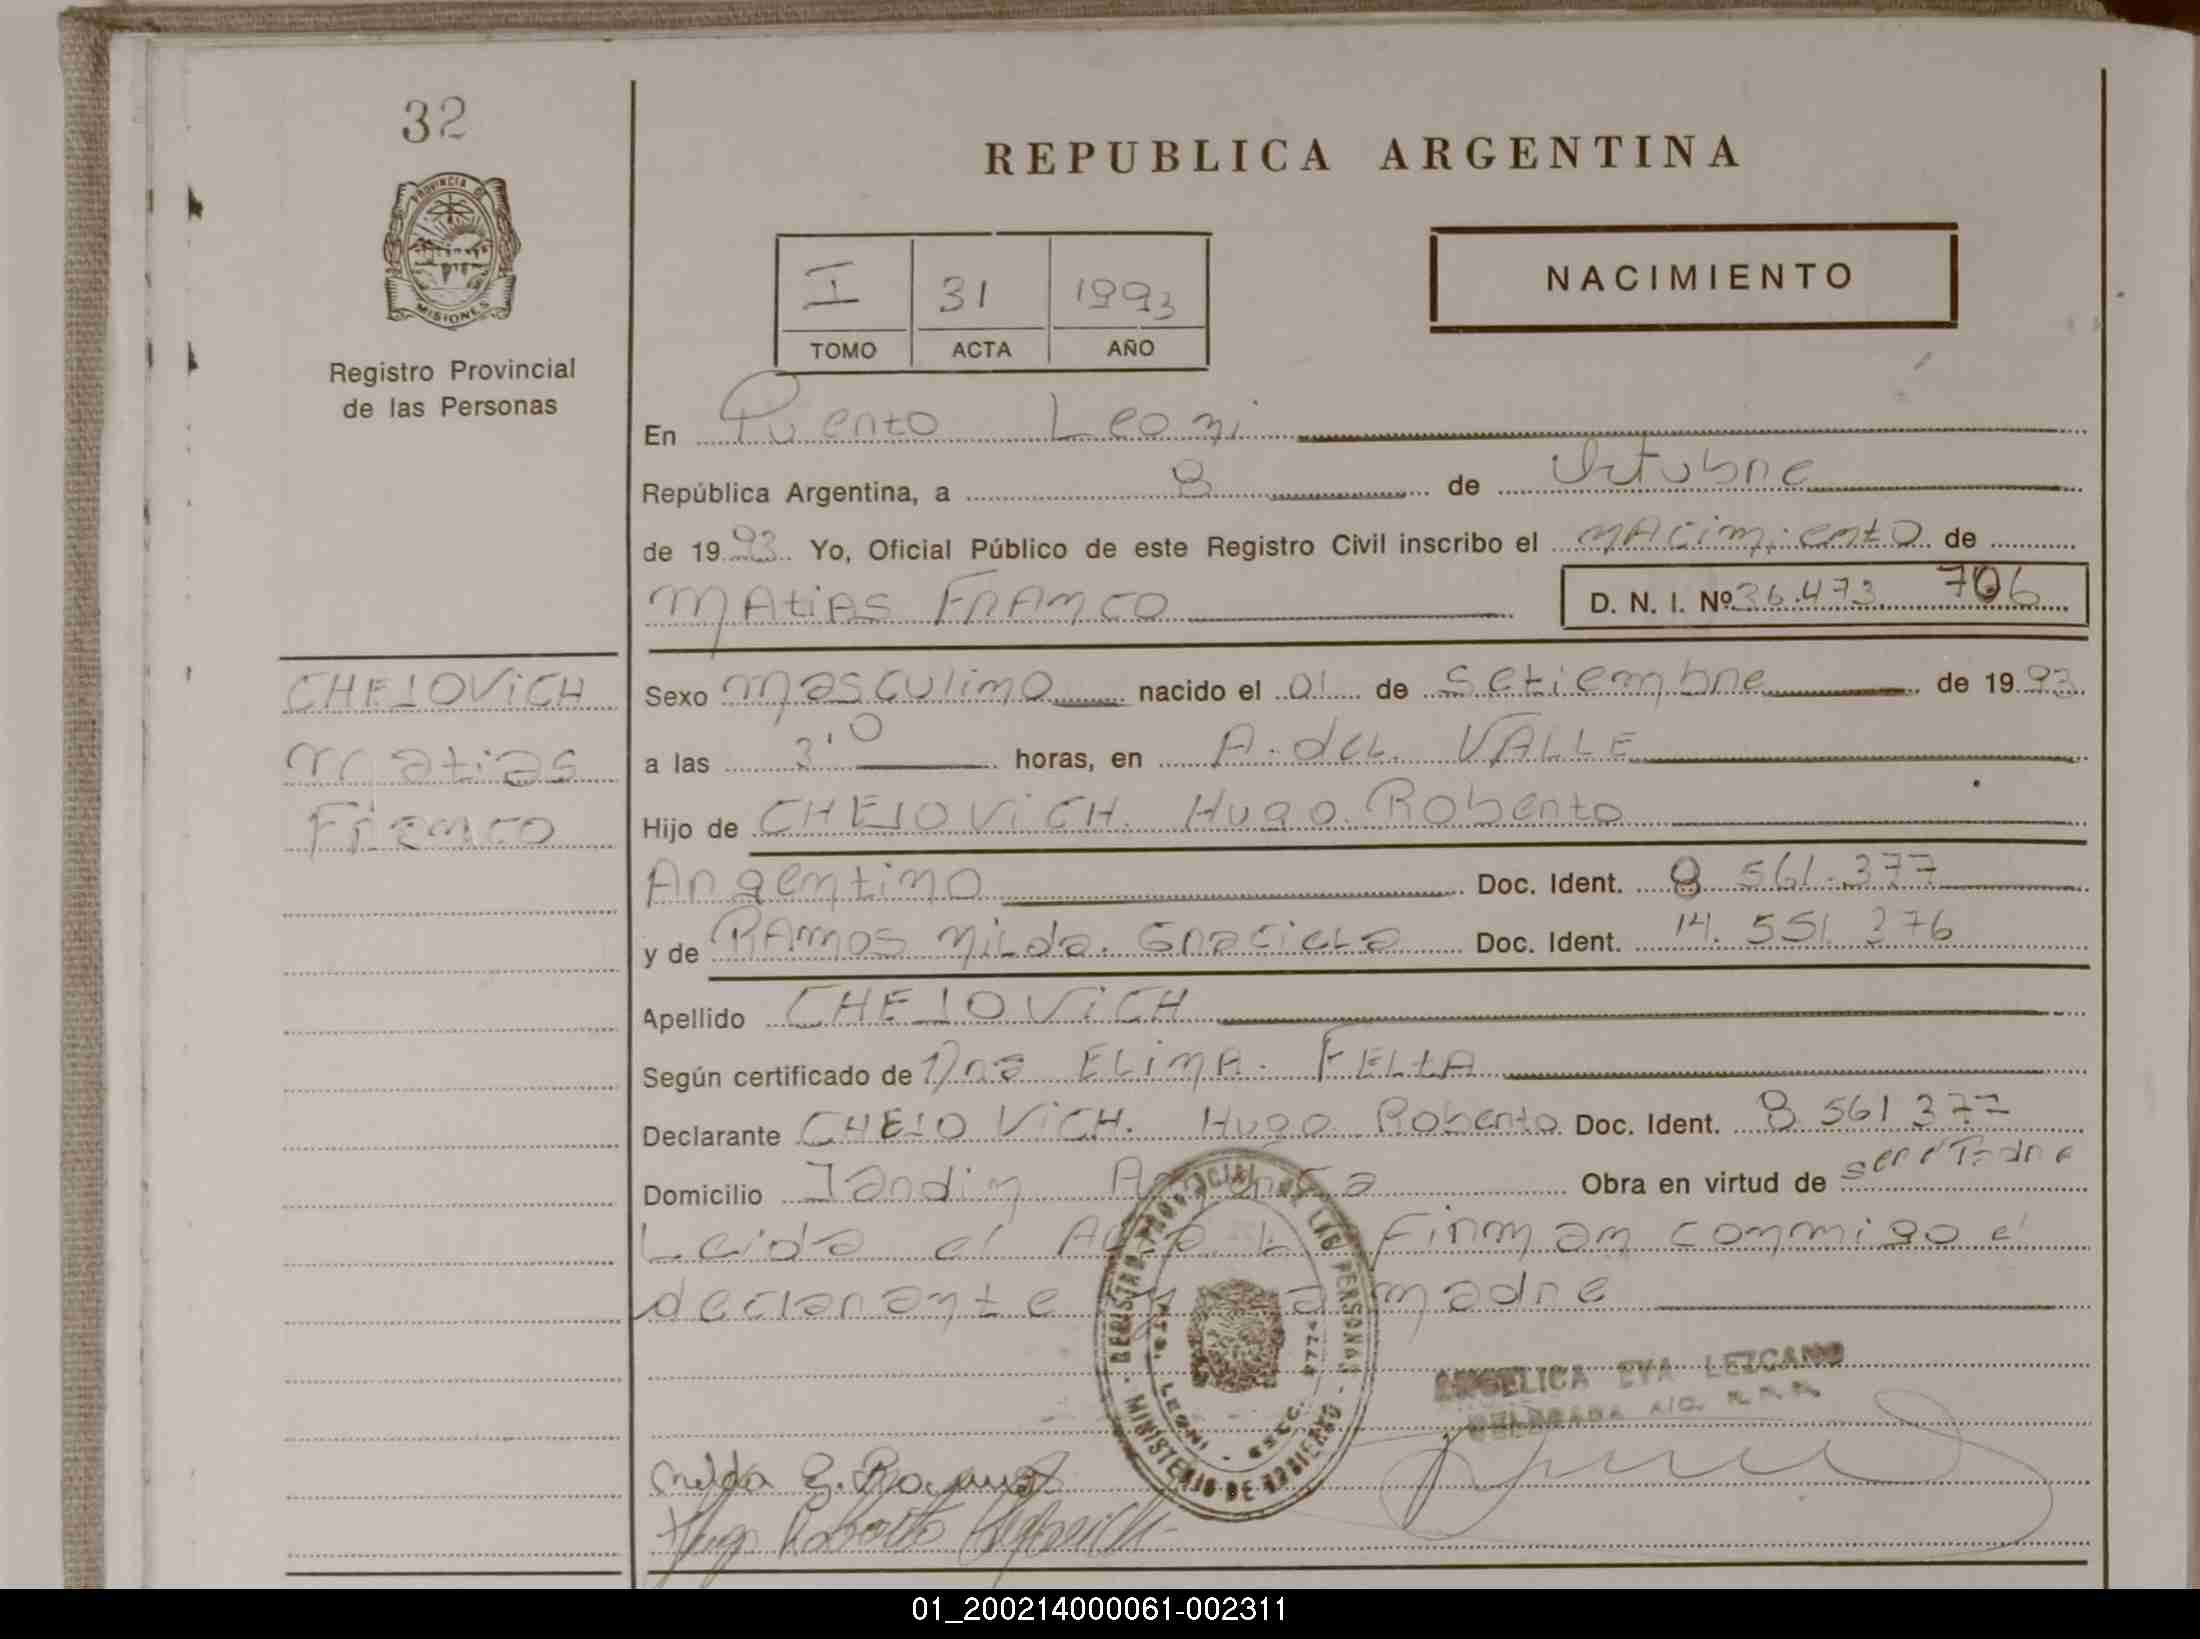 32
PROVINCIA D
MISIONES
Registro Provincial
de las Personas
REPUBLICA ARGENTINA
NACIMIENTO
I 31 1993
TOMO ACTA AÑO
En Puerto Leoni
República Argentina, a 8 de Octubre
de 1993. Yo, Oficial Público de este Registro Civil inscribo el nacimiento de
Matias Franco D. N. I. Nº 36.473 706
CHEJOVICH
Matias
Franco
Sexo masculino nacido el 01 de setiembre de 1993
a las 3'0 horas, en A. del. VALLE
Hijo de CHEJOVICH. Hugo. Roberto
Argentino Doc. Ident. 8 561.377
y de RAMOS Nilda. Graciela Doc. Ident. 14. 551 276
Apellido CHEJOVICH
Según certificado de Dra ELINA. FELTA
Declarante CHEJOVICH. Hugo Roberto Doc. Ident. 8 561 377
Domicilio Jardin America Obra en virtud de ser el Padre
Leida el Acta firman conmigo el
declarante y la madre
REGISTRO PROVINCIAL DE LAS PERSONAS
MINISTERIO DE GOBIERNO
PTO. LEONI
ANGELICA EVA LEZCANO
DELEGADA A/C. R. P. P.
Nilda G. Ramos
Hugo Roberto Chejovich
01_200214000061-002311